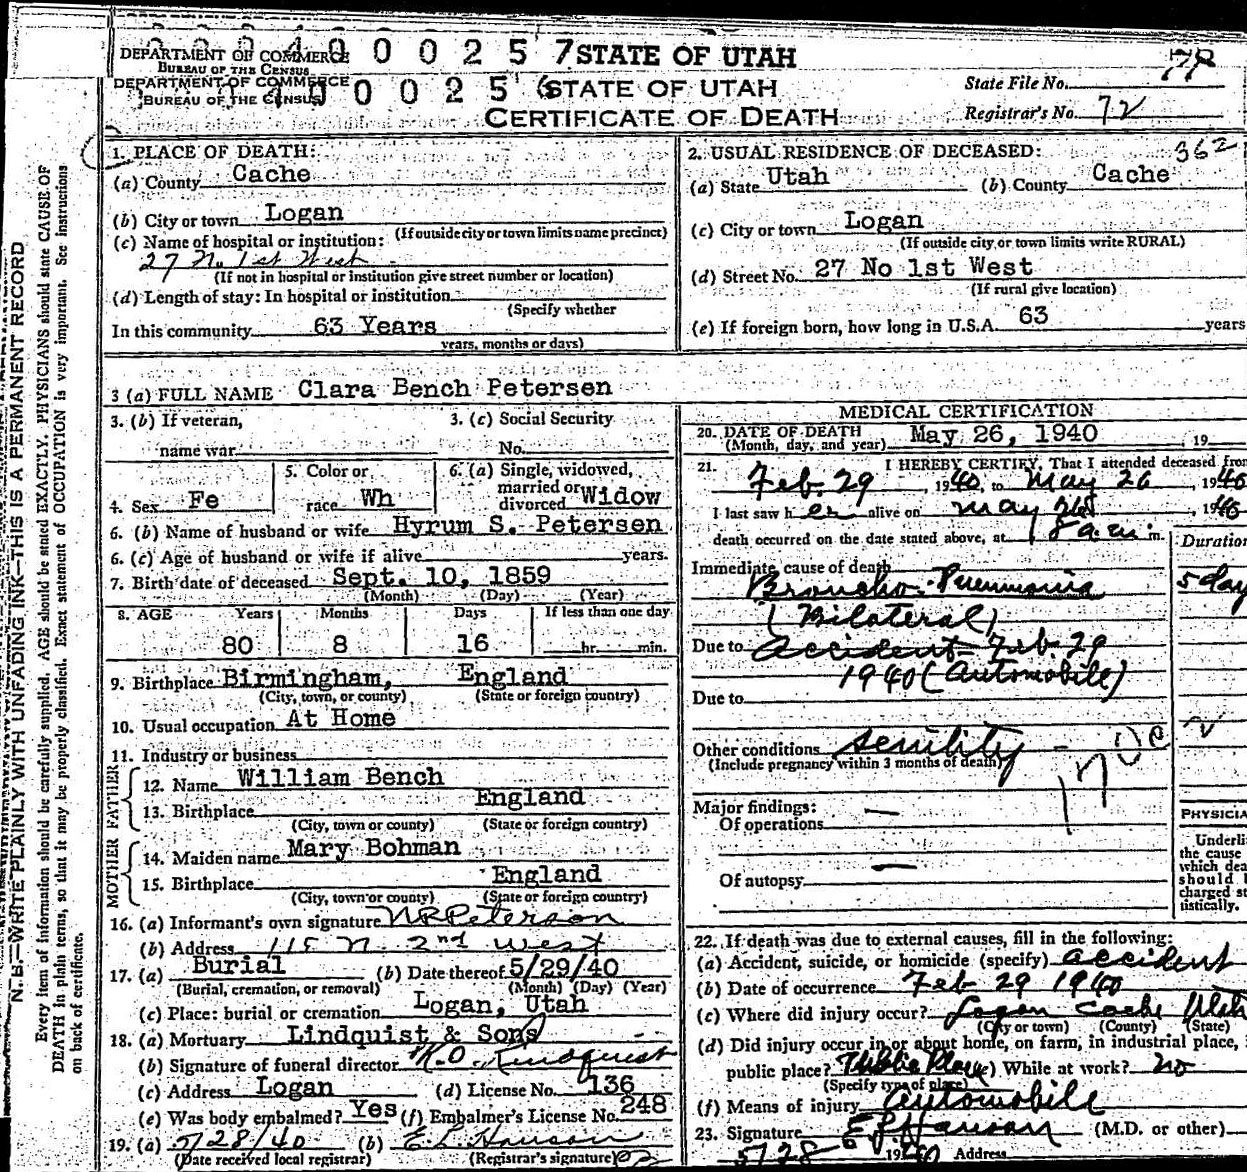 DEPARTMENT OF COMMERCE 4 0 0 0 2 5 7 STATE OF UTAH
BUREAU OF THE CENSUS
DEPARTMENT OF COMMERCE 4 0 0 0 2 5 6 STATE OF UTAH State File No.
BUREAU OF THE CENSUS
CERTIFICATE OF DEATH Registrar's No. 72
1. PLACE OF DEATH:
(a) County Cache
(b) City or town Logan
(If outside city or town limits name precinct)
(c) Name of hospital or institution:
27 No 1st West
(If not in hospital or institution give street number or location)
(d) Length of stay: In hospital or institution
(Specify whether
In this community 63 Years
years, months or days)
2. USUAL RESIDENCE OF DECEASED: 362
(a) State Utah (b) County Cache
(c) City or town Logan
(If outside city or town limits write RURAL)
(d) Street No. 27 No 1st West
(If rural give location)
(e) If foreign born, how long in U.S.A. 63 years
3 (a) FULL NAME Clara Bench Petersen
3. (b) If veteran, 3. (c) Social Security
name war No.
4. Sex Fe 5. Color or race Wh 6. (a) Single, widowed, married or divorced Widow
6. (b) Name of husband or wife Hyrum S. Petersen
6. (c) Age of husband or wife if alive years.
7. Birth date of deceased Sept. 10, 1859
(Month) (Day) (Year)
8. AGE Years Months Days If less than one day
80 8 16 hr. min.
9. Birthplace Birmingham, England
(City, town, or county) (State or foreign country)
10. Usual occupation At Home
11. Industry or business
FATHER
12. Name William Bench
13. Birthplace England
(City, town or county) (State or foreign country)
MOTHER
14. Maiden name Mary Bohman
15. Birthplace England
(City, town or county) (State or foreign country)
16. (a) Informant's own signature N R Peterson
(b) Address 115 N. 2nd West
17. (a) Burial (b) Date thereof 5/29/40
(Burial, cremation, or removal) (Month) (Day) (Year)
(c) Place: burial or cremation Logan, Utah
18. (a) Mortuary Lindquist & Sons
(b) Signature of funeral director Lindquist
(c) Address Logan (d) License No. 136
(e) Was body embalmed? Yes (f) Embalmer's License No. 248
19. (a) 5/28/40 (b) E L Hanson
(Date received local registrar) (Registrar's signature)
MEDICAL CERTIFICATION
20. DATE OF DEATH May 26, 1940 , 19
(Month, day, and year)
21. I HEREBY CERTIFY, That I attended deceased from
Feb. 29 , 1940, to May 26 , 1940
I last saw her alive on May 26 , 1940
death occurred on the date stated above, at 8 a.m. m. Duration
Immediate cause of death
Broncho-Pneumonia 5 day
(Bilateral)
Due to Accident - Feb 29
1940 (Automobile)
Due to
Other conditions Senility -
(Include pregnancy within 3 months of death)
Major findings: —
Of operations
Of autopsy —
PHYSICIA
Underli
the cause
which dea
should b
charged st
tistically.
22. If death was due to external causes, fill in the following:
(a) Accident, suicide, or homicide (specify) accident
(b) Date of occurrence Feb 29 1940
(c) Where did injury occur? Logan Cache Utah
(City or town) (County) (State)
(d) Did injury occur in or about home, on farm, in industrial place, i
public place? Public Place While at work? no
(Specify type of place)
(f) Means of injury automobile
23. Signature E L Hanson (M.D. or other)
5/28 1940 Address
N. B.—WRITE PLAINLY WITH UNFADING INK—THIS IS A PERMANENT RECORD
Every item of information should be carefully supplied. AGE should be stated EXACTLY. PHYSICIANS should state CAUSE OF
DEATH in plain terms, so that it may be properly classified. Exact statement of OCCUPATION is very important. See instructions
on back of certificate.